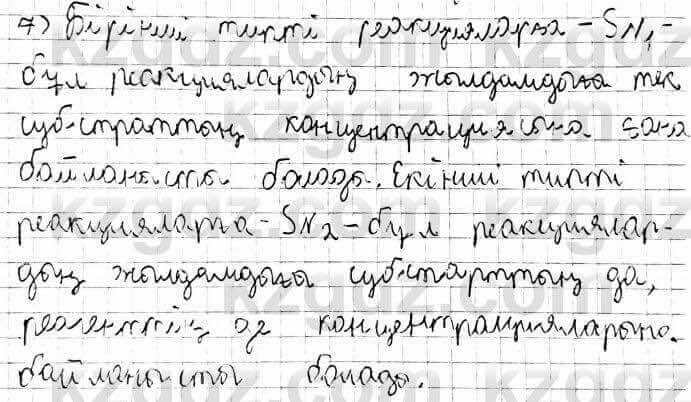 7) Бірінші типті реакцияларға - SN₁ -
бұл реакциялардың жылдамдығы тек
субстраттың концентрациясына ғана
байланысты болады. Екінші типті
реакцияларға - SN₂ - бұл реакциялар-
дың жылдамдығы субстарттың да,
реагенттің де концентрацияларына
байланысты болады.
kzgdz.com